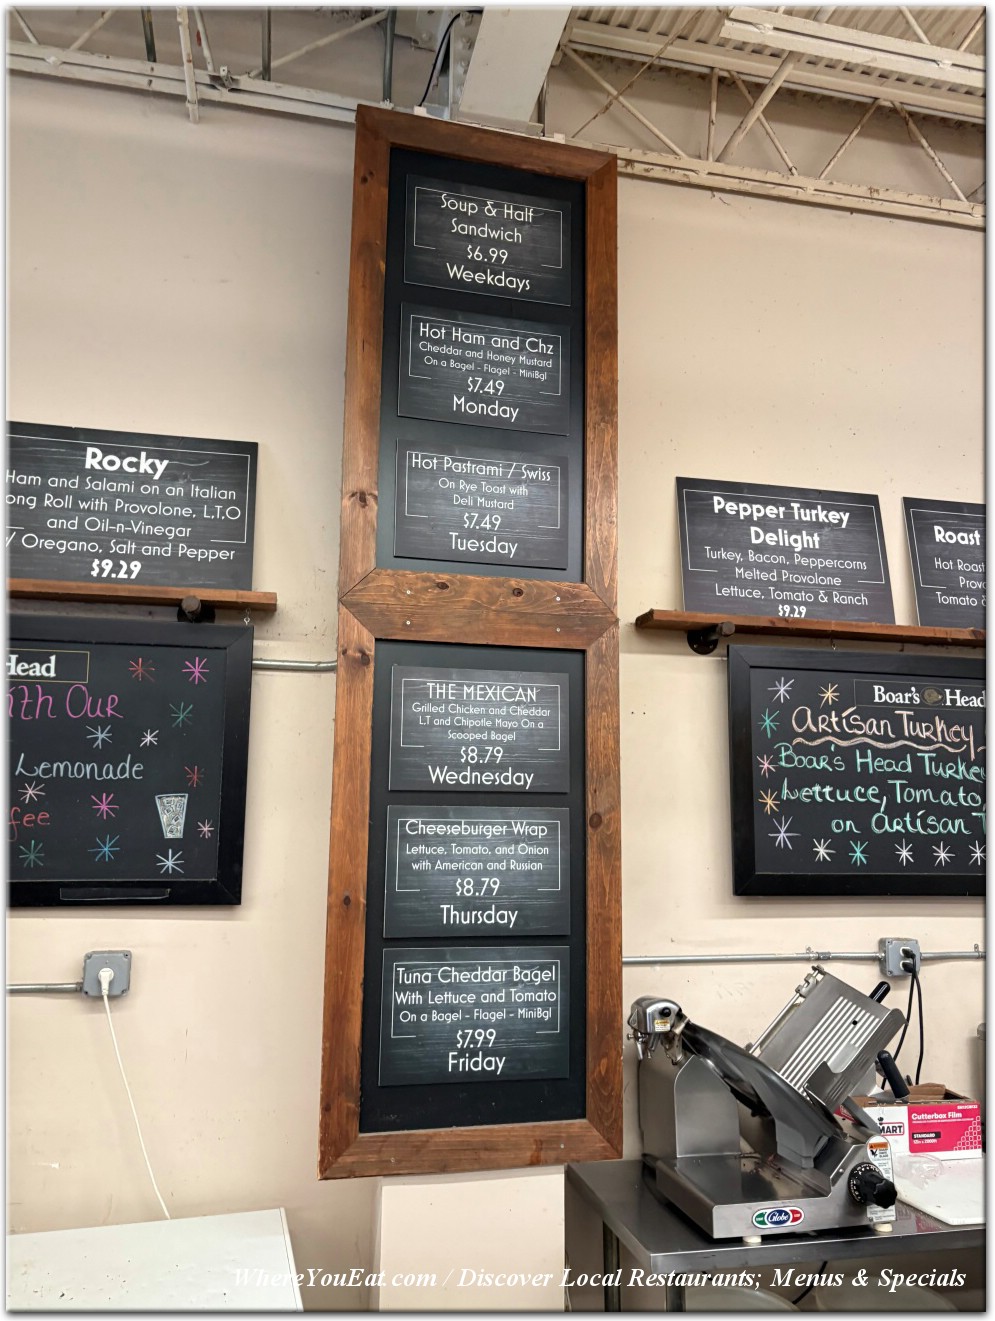 Soup & Half
Sandwich
$6.99
Weekdays
Hot Ham and Chz
Cheddar and Honey Mustard
On a Bagel - Flagel - MiniBgl
$7.49
Monday
Hot Pastrami / Swiss
On Rye Toast with
Deli Mustard
$7.49
Tuesday
THE MEXICAN
Grilled Chicken and Cheddar
L,T and Chipotle Mayo On a
Scooped Bagel
$8.79
Wednesday
Cheeseburger Wrap
Lettuce, Tomato, and Onion
with American and Russian
$8.79
Thursday
Tuna Cheddar Bagel
With Lettuce and Tomato
On a Bagel - Flagel - MiniBgl
$7.99
Friday
Rocky
Ham and Salami on an Italian
ong Roll with Provolone, L,T,O
and Oil-n-Vinegar
/ Oregano, Salt and Pepper
$9.29
Head
ith Our
Lemonade
fee
Pepper Turkey
Delight
Turkey, Bacon, Peppercorns
Melted Provolone
Lettuce, Tomato & Ranch
$9.29
Roast
Hot Roast
Prov
Tomato &
Boar's Head
Artisan Turkey
Boar's Head Turkey
Lettuce, Tomato,
on Artisan T
MART
Cutterbox Film
STANDARD
Globe
WhereYouEat.com / Discover Local Restaurants; Menus & Specials